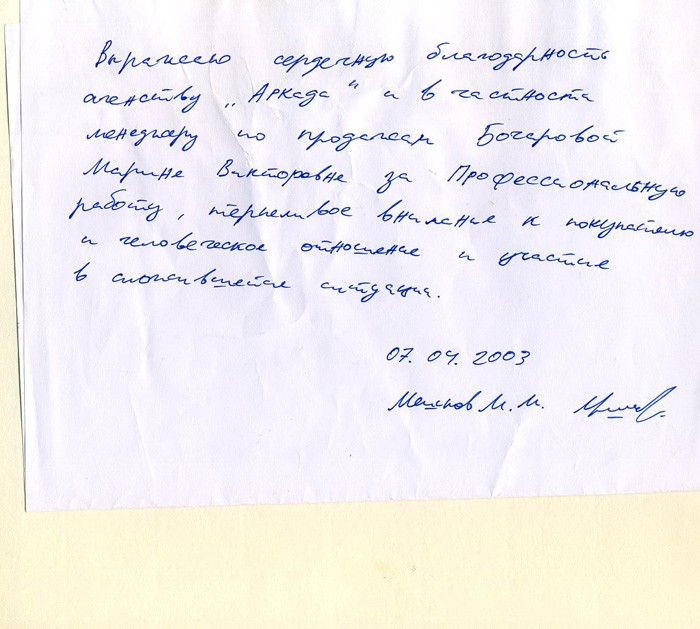 Выражаю сердечную благодарность
агенству „Аркада" и в частности
менеджеру по продажам Бочаровой
Марине Викторовне за Профессиональную
работу, терпеливое внимание к покупателю
и человеческое отношение и участие
в сложившейся ситуации.
07.04.2003
М. М.